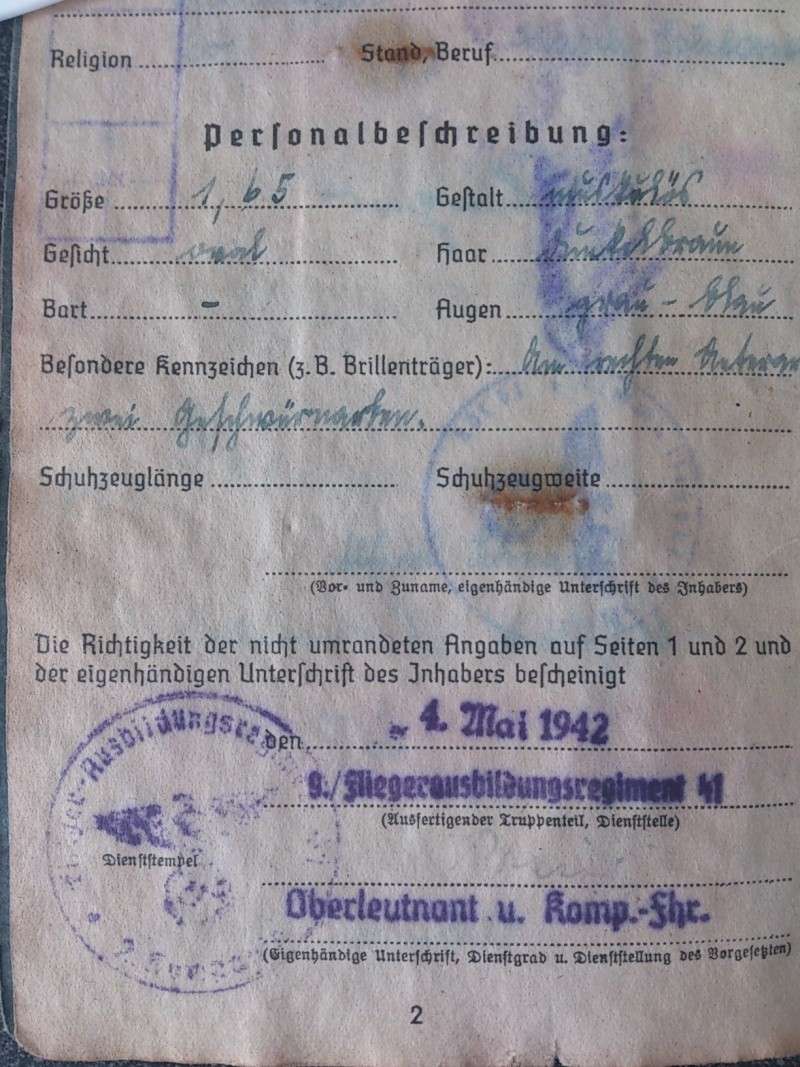 Religion Stand, Beruf
Personalbeschreibung:
Größe 1,65 Gestalt muskulös
Gesicht oval Haar dunkelbraun
Bart – Augen grau-blau
Besondere Kennzeichen (z. B. Brillenträger): Am rechten
zwei Geschwürnarben.
Schuhzeuglänge Schuhzeugweite
(Vor- und Zuname, eigenhändige Unterschrift des Inhabers)
Die Richtigkeit der nicht umrandeten Angaben auf Seiten 1 und 2 und
der eigenhändigen Unterschrift des Inhabers bescheinigt
den 4. Mai 1942
9./Fliegerausbildungsregiment 41
(Ausfertigender Truppenteil, Dienststelle)
Dienststempel
Oberleutnant u. Komp.-Fhr.
(Eigenhändige Unterschrift, Dienstgrad u. Dienststellung des Vorgesetzten)
2